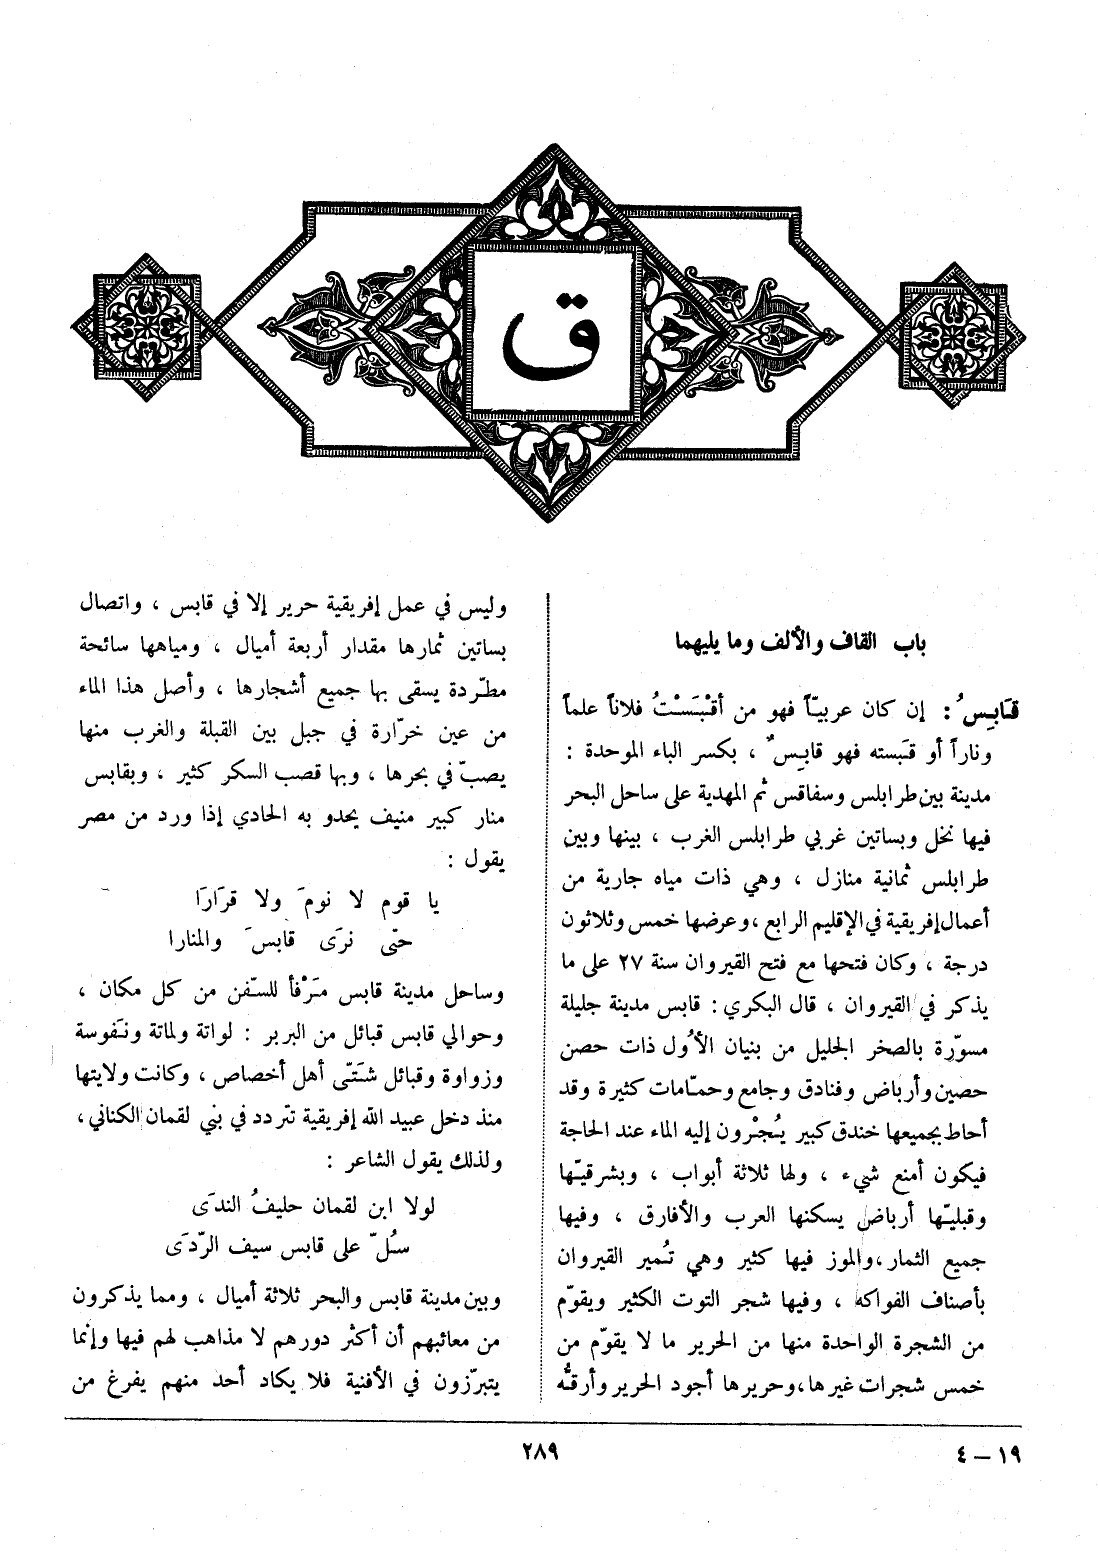 ق
باب القاف والألف وما يليهما
قَابِسُ : إن كان عربيّاً فهو من أقْبَسْتُ فلاناً علماً
وناراً أو قَبَسته فهو قابِسٌ ، بكسر الباء الموحدة :
مدينة بين طرابلس وسفاقس ثم المهدية على ساحل البحر
فيها نخل وبساتين غربي طرابلس الغرب ، بينها وبين
طرابلس ثمانية منازل ، وهي ذات مياه جارية من
أعمال إفريقية في الإقليم الرابع ، وعرضها خمس وثلاثون
درجة ، وكان فتحها مع فتح القيروان سنة ٢٧ على ما
يذكر في القيروان ، قال البكري : قابس مدينة جليلة
مسوّرة بالصخر الجليل من بنيان الأُول ذات حصن
حصين وأرباض وفنادق وجامع وحمّامات كثيرة وقد
أحاط بجميعها خندق كبير يُجْرون إليه الماء عند الحاجة
فيكون أمنع شيء ، ولها ثلاثة أبواب ، وبشرقيّها
وقبليّها أرباض يسكنها العرب والأفارق ، وفيها
جميع الثمار ، والموز فيها كثير وهي تُمير القيروان
بأصناف الفواكه ، وفيها شجر التوت الكثير ويقوّم
من الشجرة الواحدة منها من الحرير ما لا يقوّم من
خمس شجرات غيرها ، وحريرها أجود الحرير وأرقّه
وليس في عمل إفريقية حرير إلا في قابس ، واتصال
بساتين ثمارها مقدار أربعة أميال ، ومياهها سائحة
مطّردة يسقى بها جميع أشجارها ، وأصل هذا الماء
من عين خرّارة في جبل بين القبلة والغرب منها
يصبّ في بحرها ، وبها قصب السكر كثير ، وبقابس
منار كبير منيف يحدو به الحادي إذا ورد من مصر
يقول :
يا قوم لا نومَ ولا قرَارَا
حتّى نرَى قابسَ والمنارا
وساحل مدينة قابس مَرْفأ للسّفن من كل مكان ،
وحوالي قابس قبائل من البربر : لواتة ولماتة ونَفوسة
وزواوة وقبائل شَتّى أهل أخصاص ، وكانت ولايتها
منذ دخل عبيد الله إفريقية تتردد في بني لقمان الكناني ،
ولذلك يقول الشاعر :
لولا ابن لقمان حليفُ الندَى
سُلّ على قابس سيف الرّدَى
وبين مدينة قابس والبحر ثلاثة أميال ، ومما يذكرون
من معائبهم أن أكثر دورهم لا مذاهب لهم فيها وإنما
يتبرّزون في الأفنية فلا يكاد أحد منهم يفرغ من
١٩ – ٤
٢٨٩